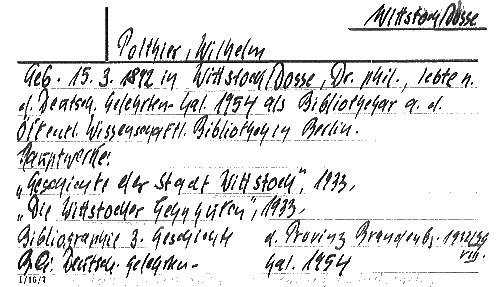 Wittstock/Dosse
Polthier, Wilhelm
Geb. 15.3.1892 in Wittstock/Dosse, Dr. phil., lebte n.
d. Deutsch. Gelehrten-Kal. 1954 als Bibliothekar a. d.
Öffentl. Wissenschaftl. Bibliothek in Berlin.
Hauptwerke:
„Geschichte der Stadt Wittstock", 1933,
„Die Wittstocker", 1933,
Bibliographie z. Geschichte d. Provinz Brandenbg.
Deutsch. Gelehrten- Kal. 1954